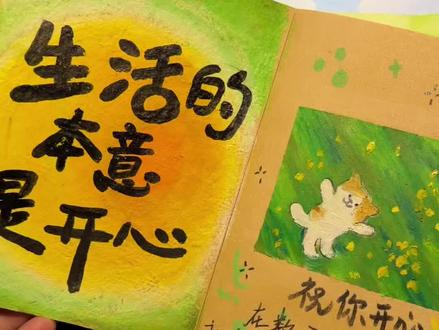 生活的
本意
是开心
祝你开心
在